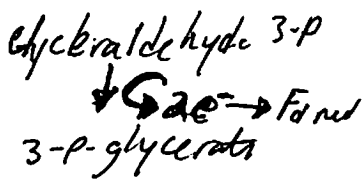 Glyceraldehyde 3-P
↓ 2e⁻ →
3-P-glycerate